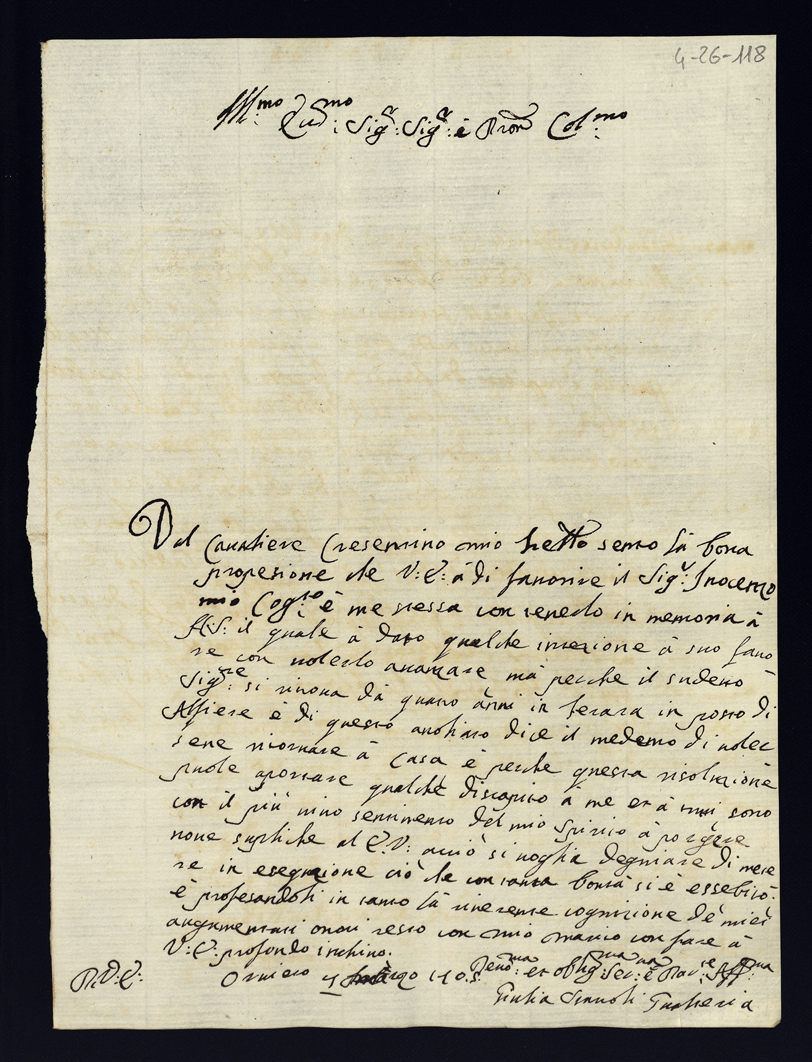 4-26-118
Ill:mo
Sig:r Sig:r è Pron Col:mo
Dal Cavaliere Cresentino mio sento la bona
propesione che V:E: à di favorire il Sig:r Inocenzo
mio Cog:to è me stessa con tenerlo in memoria à
A:S: il quale à dato qualche intezione à suo favo
re con volerlo avanzare mà perche il sudetto
Sig:re si ritrova dà quatro anni in ferara in posto di
Alfiere è di questo anchora dice il medemo di voler
sene ritornare à Casa è perche questa risoluzione
puole aportare qualche discapito à me et à tuti sono
con il più vivo sentimento del mio Spirito à porgere
nove supliche al E.V: acciò si voglia degniare di mete
re in esegutione ciò che con tanta bontà si è essebito:
è profesandoli in tanto la riverente cognitione de miei
augumentati onori resto con mio marito con fare à
V:E: profondo inchino.
Orvieto 1 1705
Giulia Gualteria